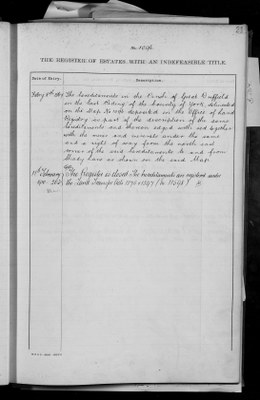 THE REGISTER OF ESTATES WITH AN INDEFEASIBLE TITLE.
Date of Entry.
Description.
The hereditaments in the Parish of Great Driffield
in the East Riding of the County of York, delineated
on the Map No deposited in the Office of Land
Registry as part of the description of the same
hereditaments and thereon edged with red together
with the mines and minerals under the same
and a right of way from the north end
corner of the said hereditaments to and from
Shady Lane as shown on the said Map.
The Register is closed. The hereditaments are registered under
the Land Transfer Acts 1875 & 1897